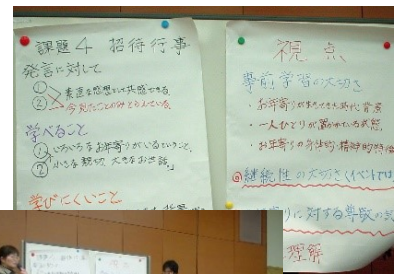 課題4 招待行事
発言に対して
① 素直な感想として共感できる
② 今見たことのみとらえている。
学べること
① いろいろなお年寄りがいるということ。
② 小さな親切、大きなお世話。
学びにくいこと
視点
事前学習の大切さ
・お年寄りが生きてきた時代背景
・一人ひとりが置かれている状態
・お年寄りの身体的・精神的特徴
◎継続性の大切さ(イベントでは
に対する尊敬の
理解